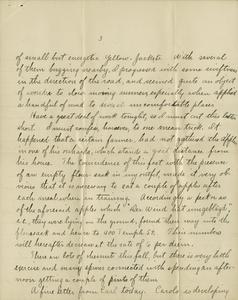 3
of small but energetic Yellow Jackets. With several
of them buzzing nearby, I progressed with some swiftness
in the direction of the road, and seemed quite an object
of wonder to slow moving
a handful of mud to several uncomfortable places.
Have a great deal of work tonight, so I must cut this letter
short. I must confess, however, to one mean trick. It
happens that a certain farmer had not gathered the apples
in one of his orchards, which stands a good distance from
his house. The coincidence of this fact with the presence
of an empty flour sack in my outfit, made it very ob-
vious that it is necessary to eat a couple of apples after
each meal when in training. Accordingly a peck or so
of the aforesaid apples which "Der Wind hat
etc., they were lying on the ground, found their way into the
flour sack and hence to 400 Temple St. This
will hereafter decrease at the rate of 6 per diem.
There are lots of chestnut this fall, but there is very little
exercise and many spines connected with spending an after-
noon getting a couple of pints of them.
A fine letter from Earl today. is developing